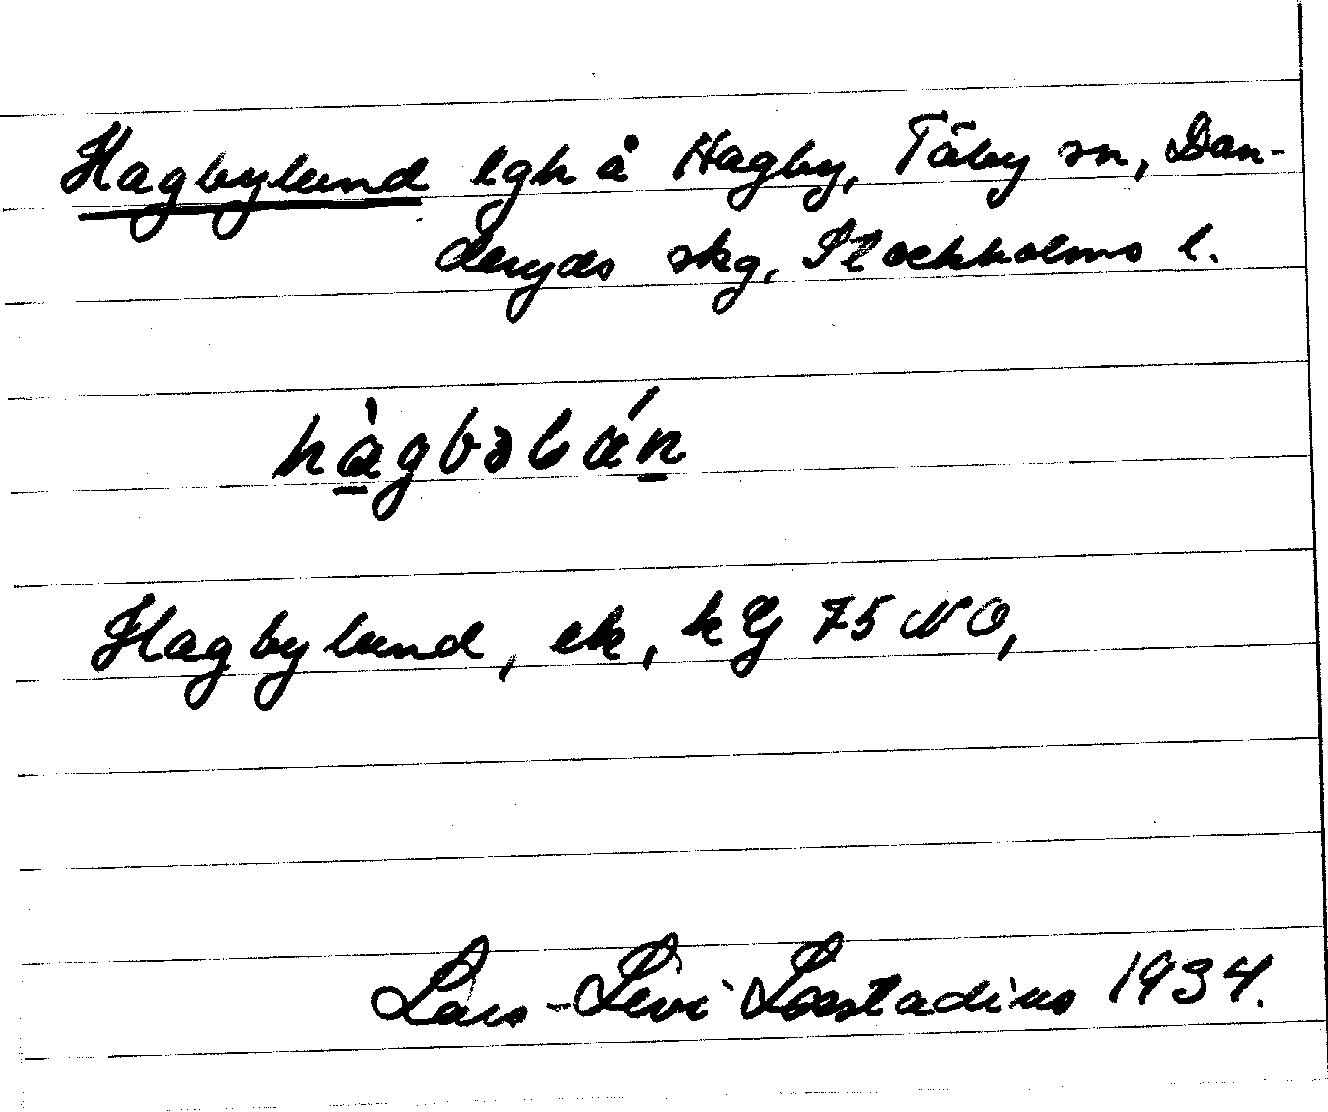 Hagbylund lgh å Hagby, Täby sn, Dan-
deryds skg, Stockholms l.
Hagbylund, ek, kG 75 NO,
Lars-Levi Læstadius 1934.